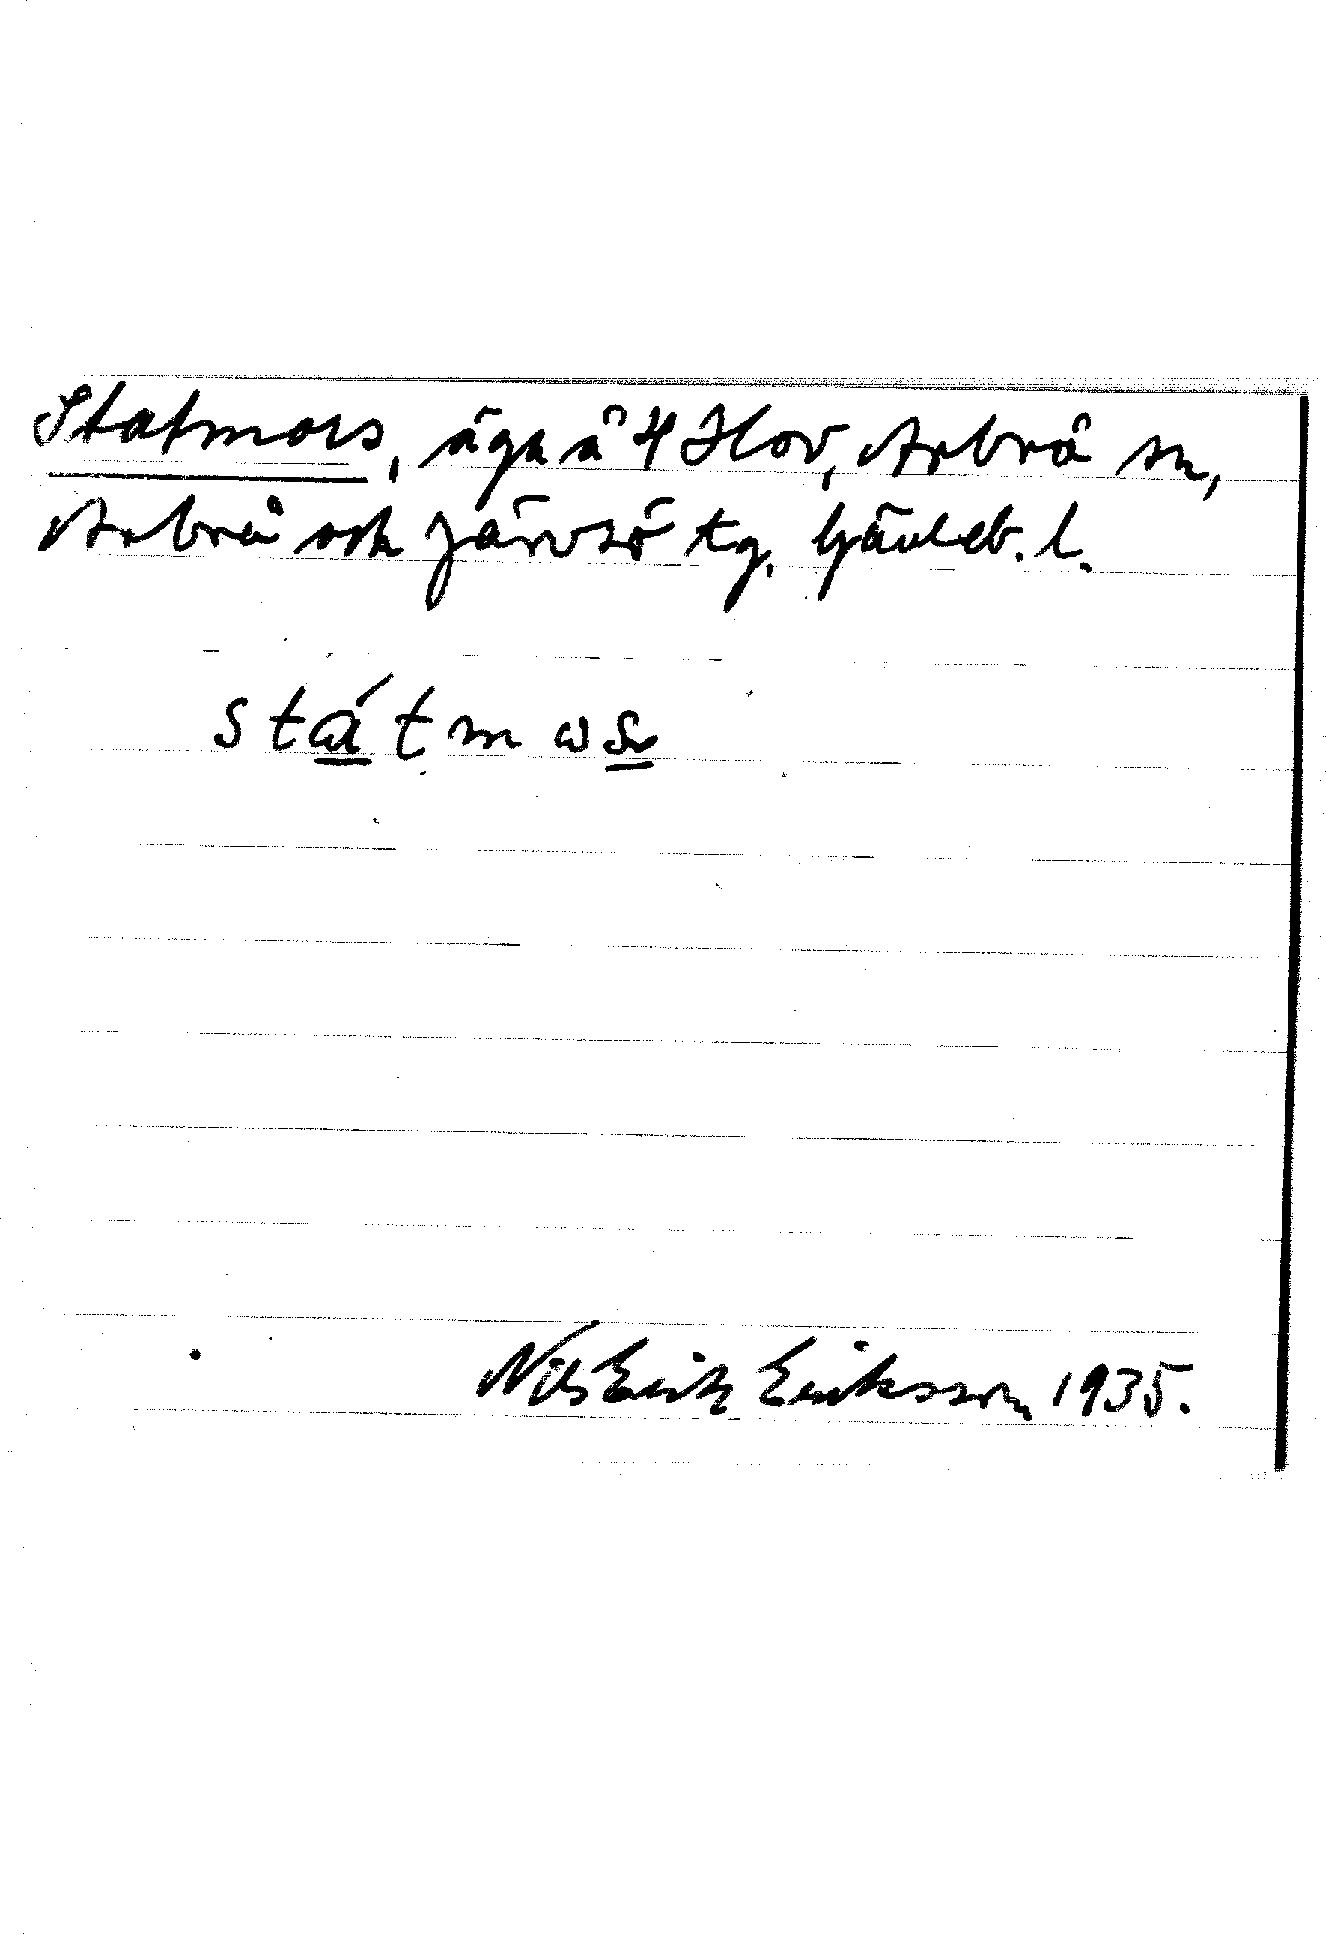 Statmors, äga å 4 Hov, Arbrå sn,
Arbrå och Järvsö tg. Gävleb. l.
Nils Erik Eriksson 1935.